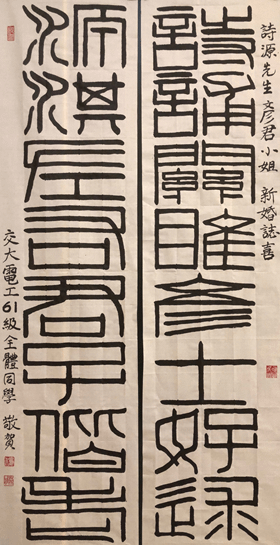 詩源先生 彥君小姐 新婚誌喜
詩誦關雎彥士好逑
源淇左右君子偕老
交大電工61級全體同學 敬賀